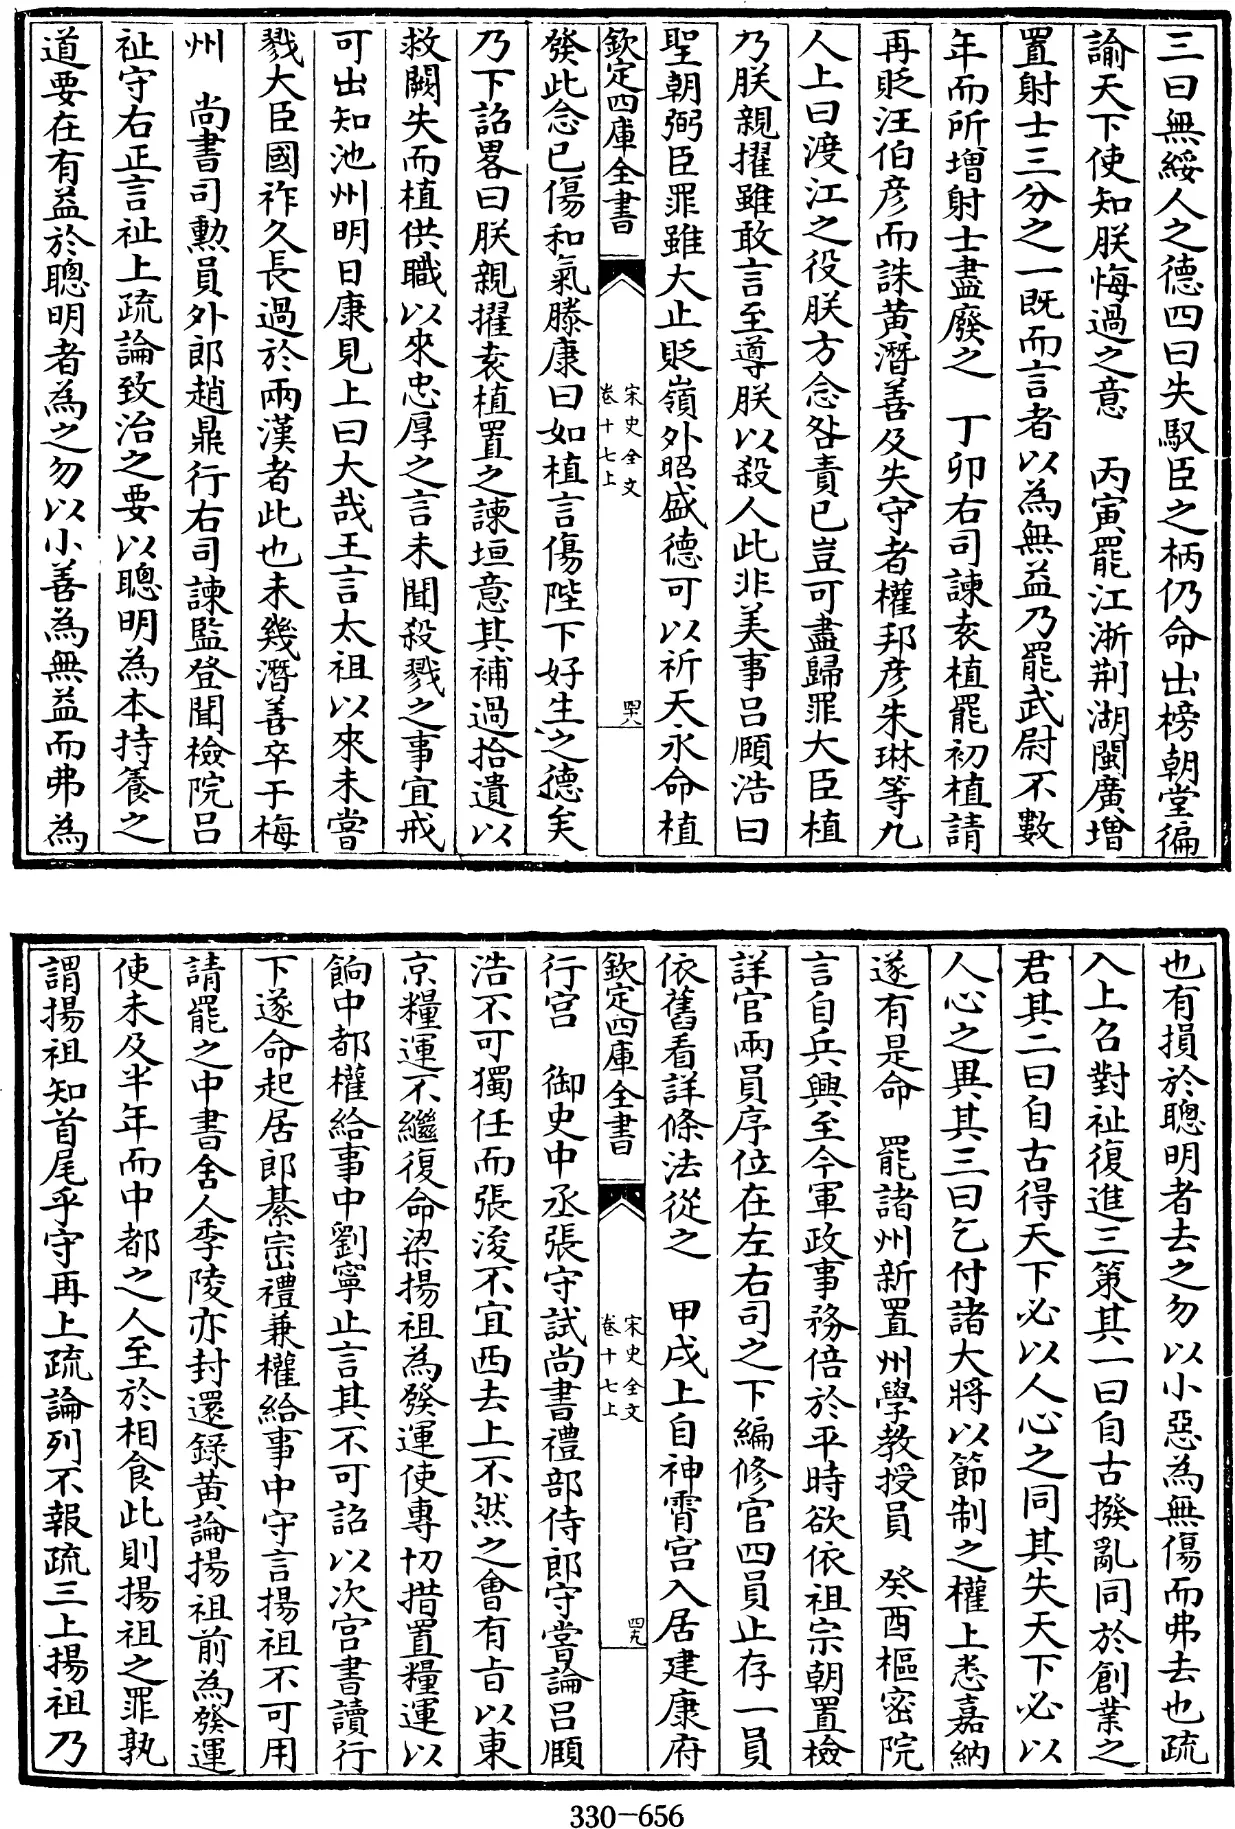 三曰無綏人之德四曰失馭臣之柄仍命出榜朝堂徧
諭天下使知朕悔過之意　丙寅罷江浙荆湖閩廣增
置射士三分之一既而言者以為無益乃罷武尉不數
年而所增射士盡廢之　丁卯右司諫袁植罷初植請
再貶汪伯彦而誅黄潛善及失守者權邦彦朱琳等九
人上曰渡江之役朕方念咎責已豈可盡歸罪大臣植
乃朕親擢雖敢言至導朕以殺人此非美事吕頤浩曰
聖朝弼臣罪雖大止貶嶺外昭盛德可以祈天永命植
欽定四庫全書
宋史全文
卷十七上
四八
發此念已傷和氣滕康曰如植言傷陛下好生之德矣
乃下詔畧曰朕親擢袁植置之諫垣意其補過拾遺以
救闕失而植供職以來忠厚之言未聞殺戮之事宜戒
可出知池州明日康見上曰大哉王言太祖以來未嘗
戮大臣國祚久長過於兩漢者此也未幾潛善卒于梅
州　尚書司勲員外郎趙鼎行右司諫監登聞檢院吕
祉守右正言祉上疏論致治之要以聰明為本持養之
道要在有益於聰明者為之勿以小善為無益而弗為
也有損於聰明者去之勿以小惡為無傷而弗去也疏
入上召對祉復進三策其一曰自古撥亂同於創業之
君其二曰自古得天下必以人心之同其失天下必以
人心之異其三曰乞付諸大將以節制之權上悉嘉納
遂有是命　罷諸州新置州學教授員　癸酉樞密院
言自兵興至今軍政事務倍於平時欲依祖宗朝置檢
詳官兩員序位在左右司之下編修官四員止存一員
依舊看詳條法從之　甲戌上自神霄宫入居建康府
欽定四庫全書
宋史全文
卷十七上
四九
行宫　御史中丞張守試尚書禮部侍郎守嘗論吕頤
浩不可獨任而張浚不宜西去上不然之會有旨以東
京糧運不繼復命梁揚祖為發運使專切措置糧運以
餉中都權給事中劉寧止言其不可詔以次官書讀行
下遂命起居郎綦宗禮兼權給事中守言揚祖不可用
請罷之中書舍人季陵亦封還録黄論揚祖前為發運
使未及半年而中都之人至於相食此則揚祖之罪孰
謂揚祖知首尾乎守再上疏論列不報疏三上揚祖乃
330-656